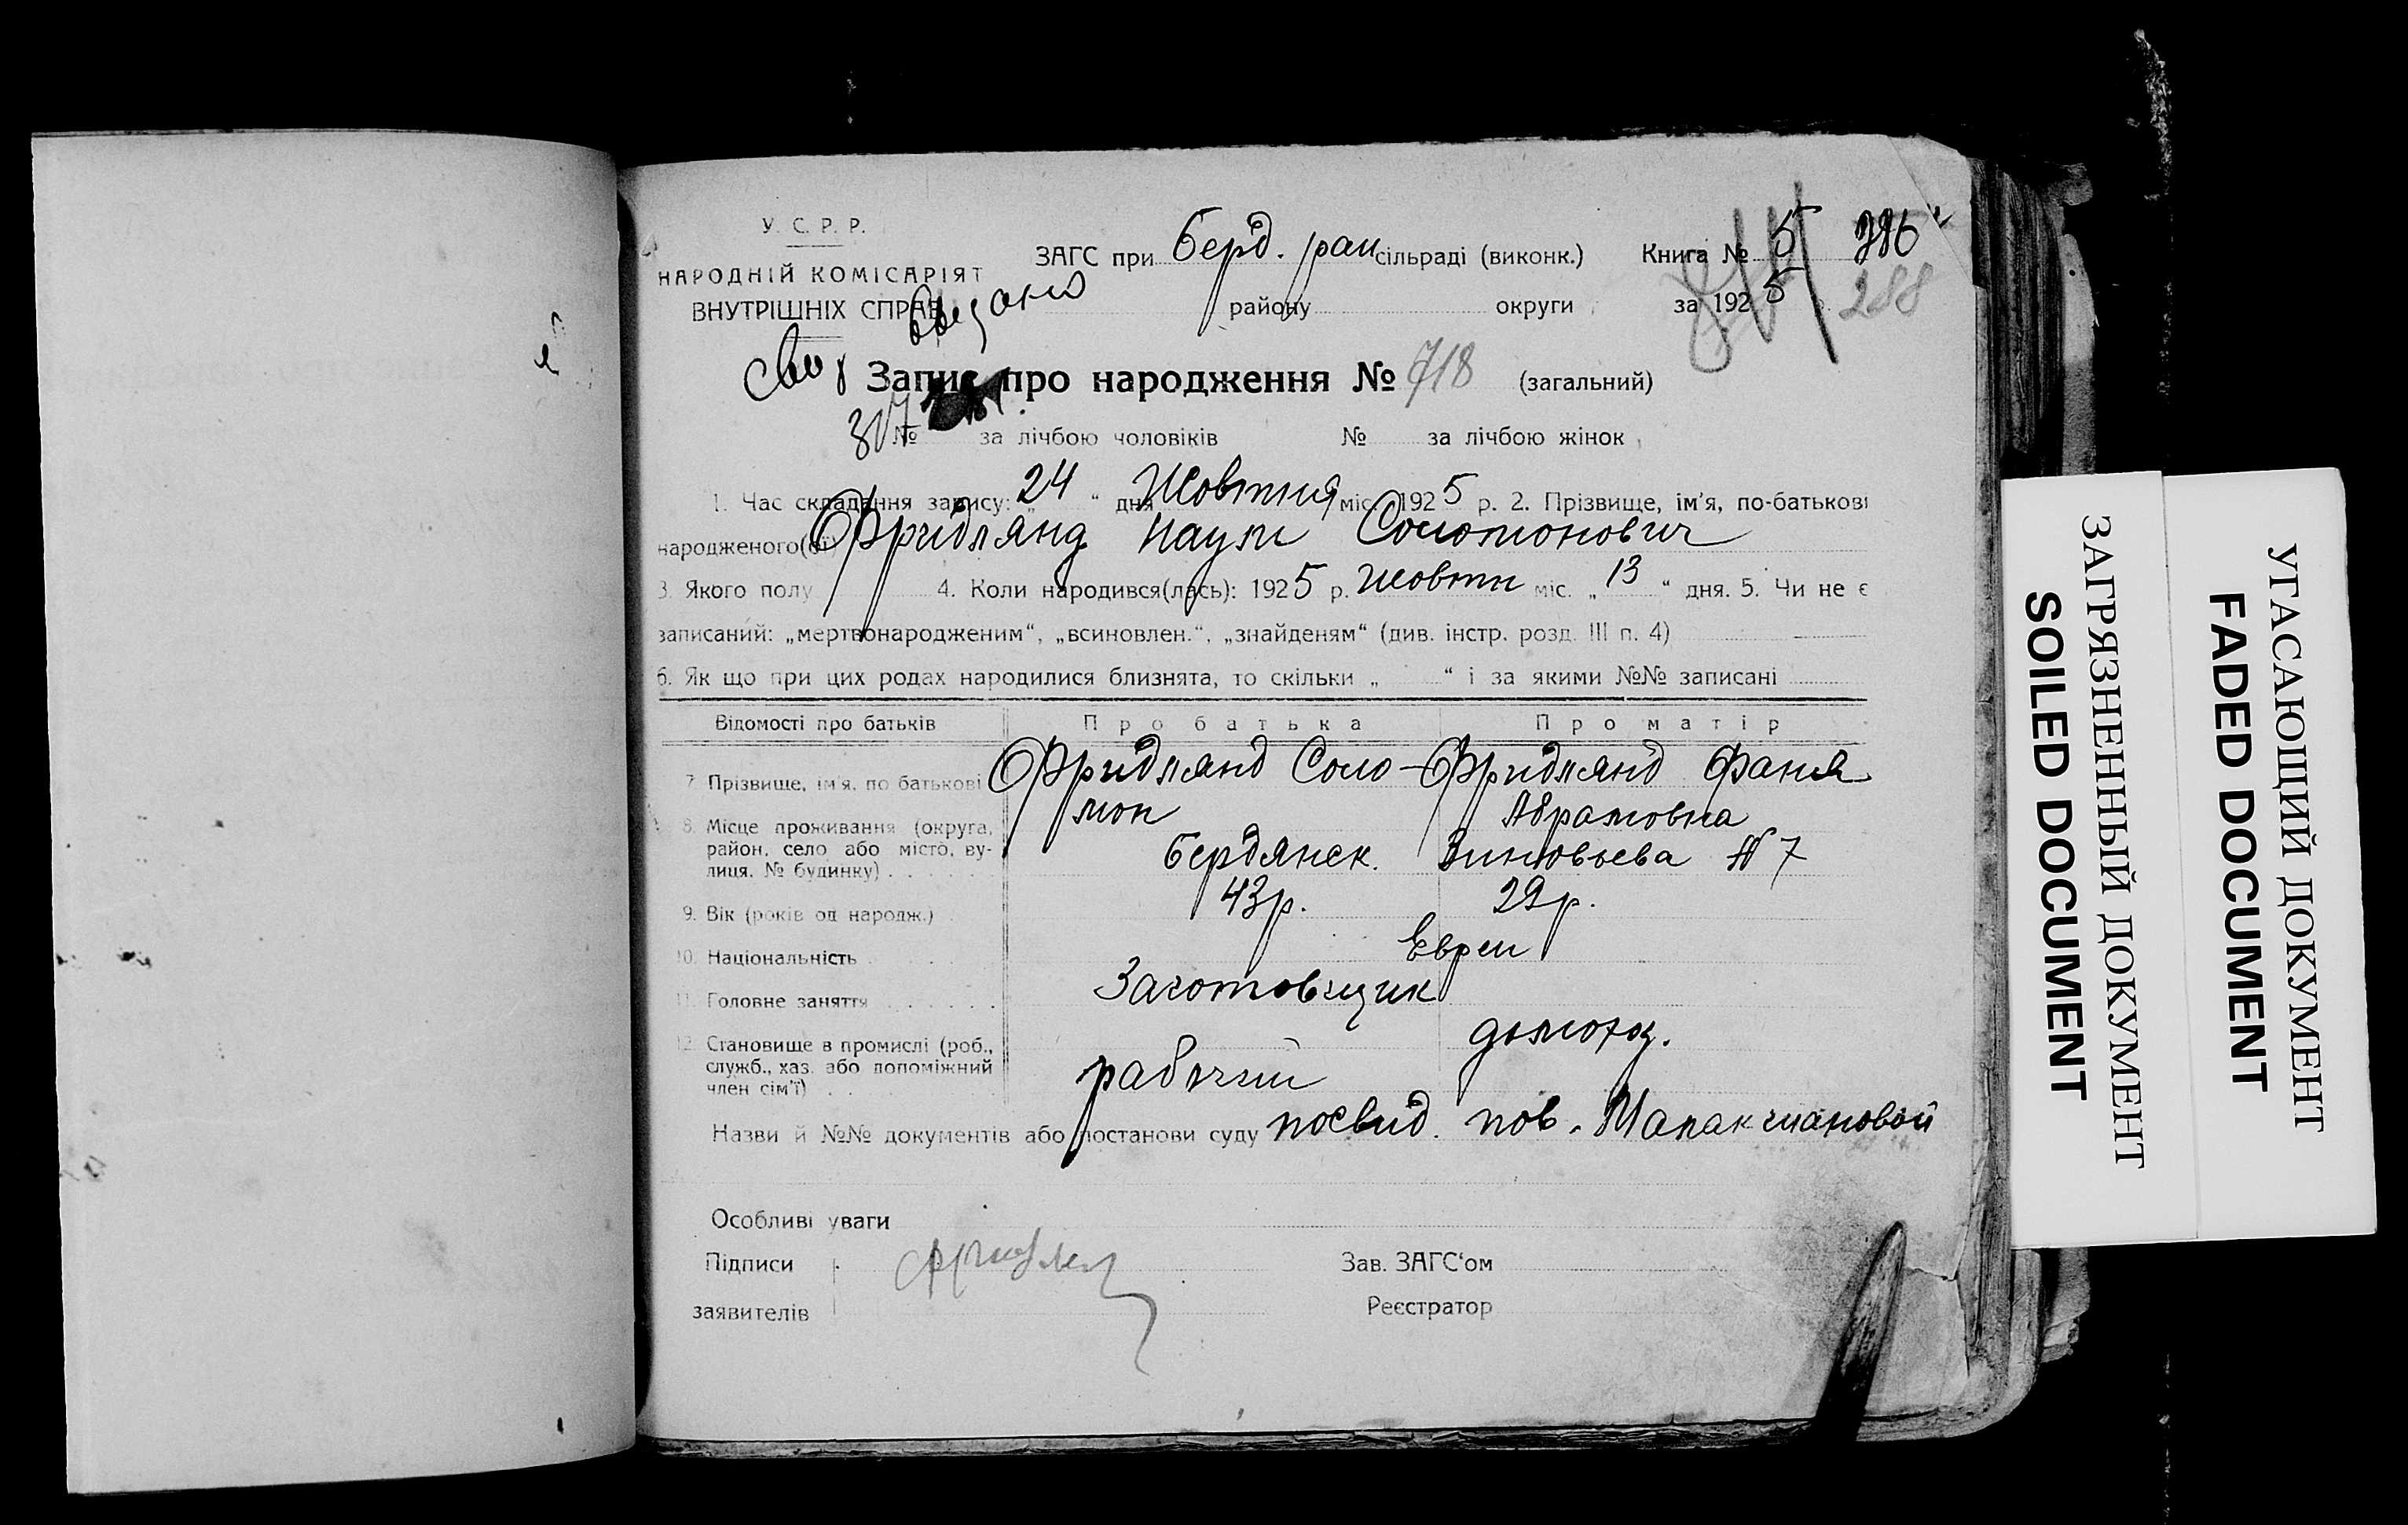 У. С. Р. Р.
НАРОДНІЙ КОМІСАРІЯТ
ВНУТРІШНІХ СПРАВ
ЗАГС при Берд. рай сільраді (виконк.) Книга № 5 386
району округи за 1925 288
Запис про народження № 718 (загальний)
317 № за лічбою чоловіків № за лічбою жінок
1. Час складання запису: „24“ дня Жовтня міс. 1925 р. 2. Прізвище, ім'я, по-батькові
народженого(ої) Фридлянд Наум Соломонович
3. Якого полу 4. Коли народився(лась): 1925 р. жовтн міс. „13“ дня. 5. Чи не є
записаний: „мертвонародженим“, „всиновлен.“, „знайденям“ (див. інстр. розд. III п. 4)
6. Як що при цих родах народилися близнята, то скільки „ “ і за якими №№ записані
Відомості про батьків Про батька Про матір
7. Прізвище, ім'я, по батькові Фридлянд Соло- Фридлянд Фаня
мон Абрамовна
8. Місце проживання (округа,
район, село або місто, ву-
лиця, № будинку) Бердянск. Зиновьева № 7
9. Вік (років од народж.) 43 р. 29 р.
10. Національність Евреи
11. Головне заняття Заготовщик
домохоз.
12. Становище в промислі (роб.,
служб., хаз. або допоміжний
член сім'ї) рабочий
Назви й №№ документів або постанови суду посвид. пов.
Особливі уваги
Підписи Зав. ЗАГС'ом
заявителів Реєстратор
ЗАГРЯЗНЕННЫЙ ДОКУМЕНТ
SOILED DOCUMENT
УГАСАЮЩИЙ ДОКУМЕНТ
FADED DOCUMENT